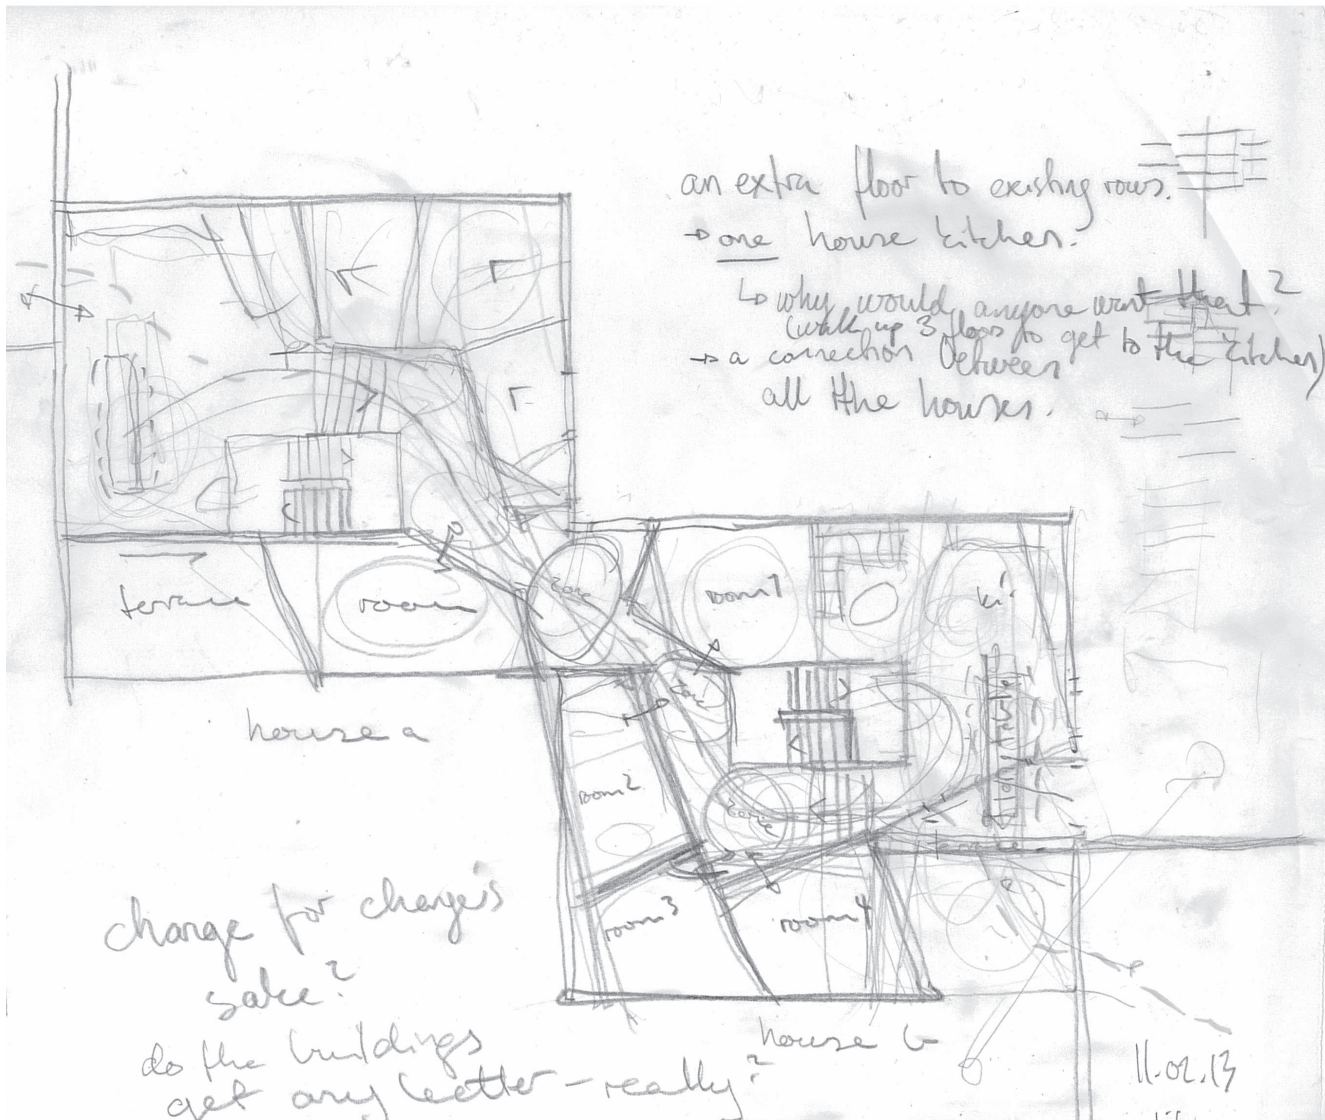 an extra floor to existing rows.
→ one house kitchen.
↳ why would anyone want that?
(walk up 3 floors to get to the kitchen)
→ a connection between
all the houses.
terrace
room
zone
room 1
ki
house a
room 2
zone
room 3
room 4
house b
change for change's
sake?
do the buildings
get any better – really?
11.02.13